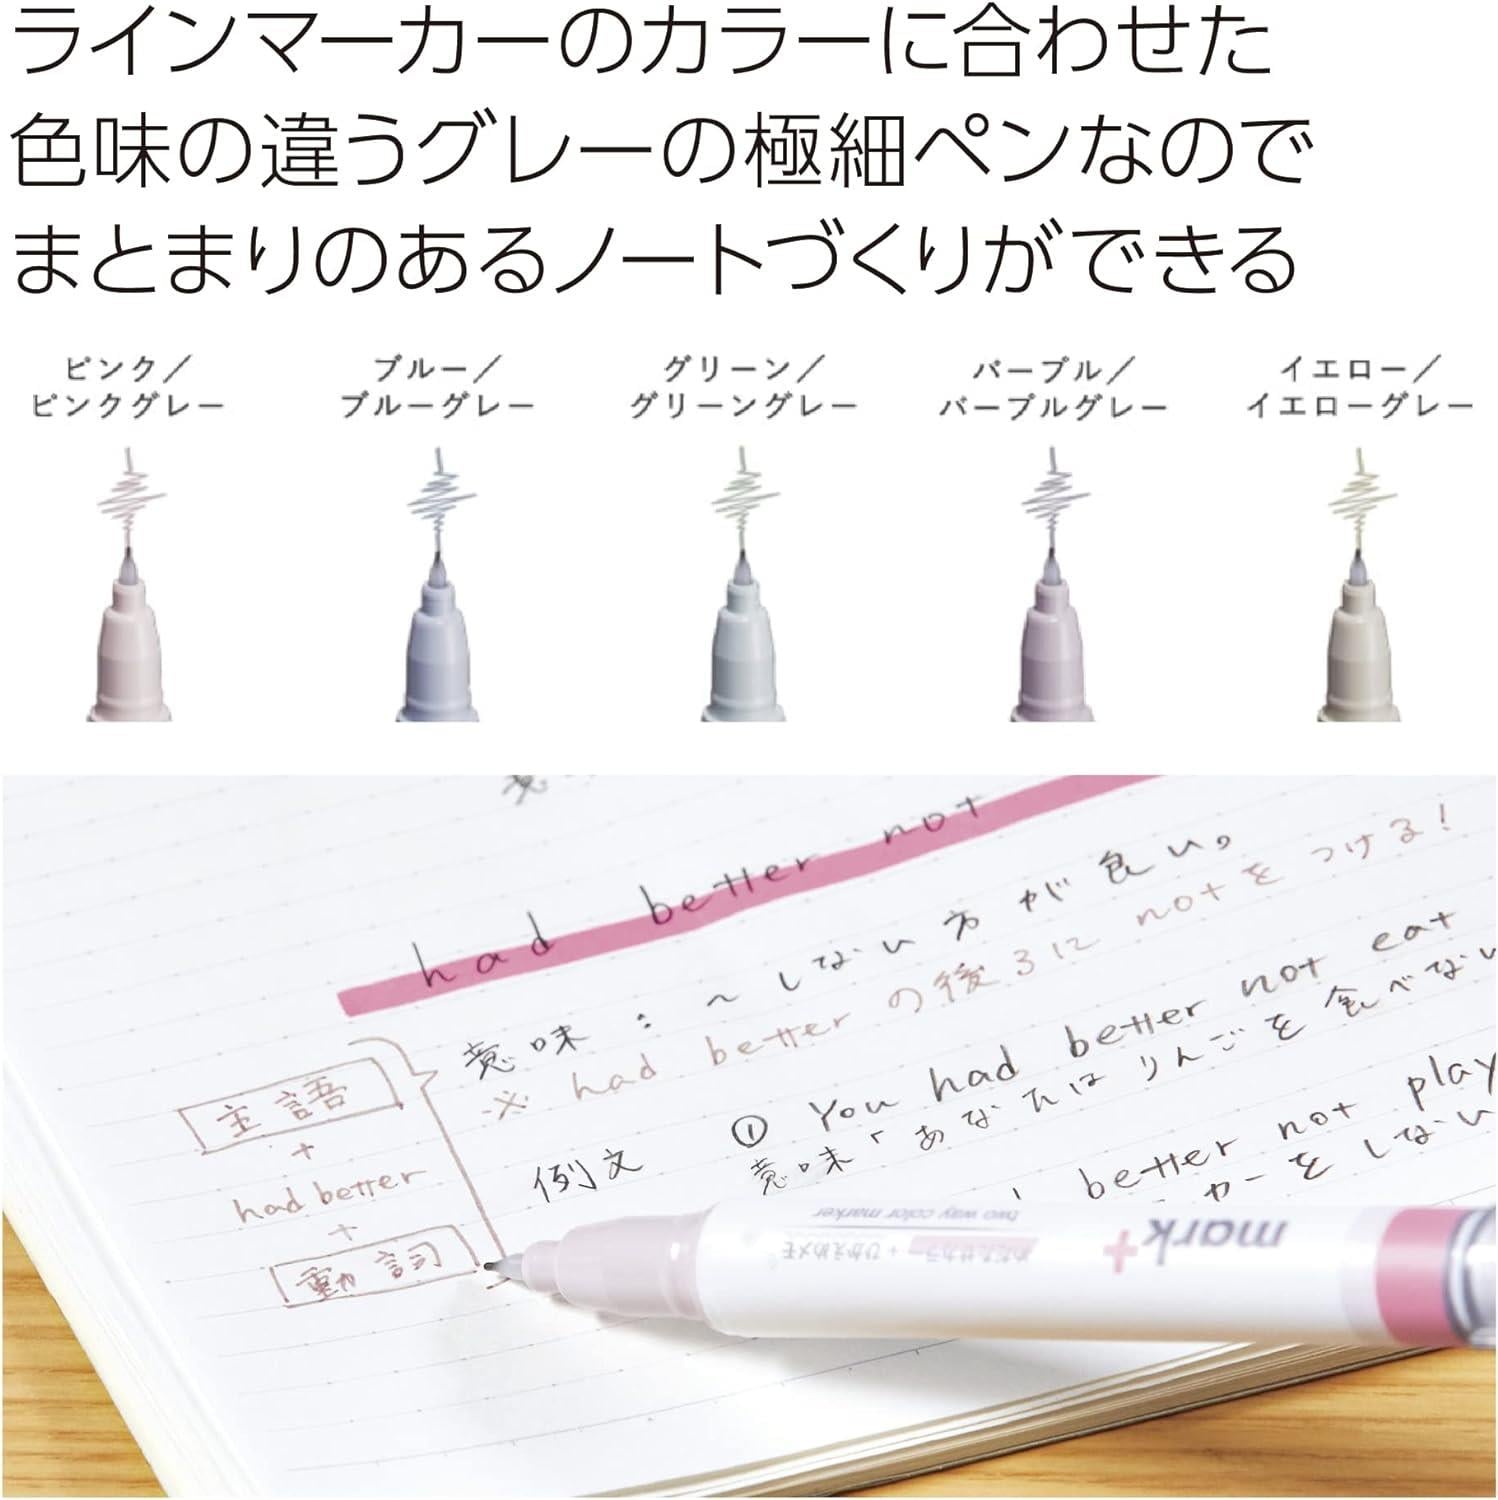 ラインマーカーのカラーに合わせた
色味の違うグレーの極細ペンなので
まとまりのあるノートづくりができる
ピンク／
ピンクグレー
ブルー／
ブルーグレー
グリーン／
グリーングレー
パープル／
パープルグレー
イエロー／
イエローグレー
had better not
意味：～しない方が良い。
※ had better の後ろに notをつける！
主語
+
had better
+
動詞
例文
① You had better not eat
意味「あなたはりんごを食べない
better not play
カーをしない
mark+
めだたせカラー + ひかえめメモ
two way color marker